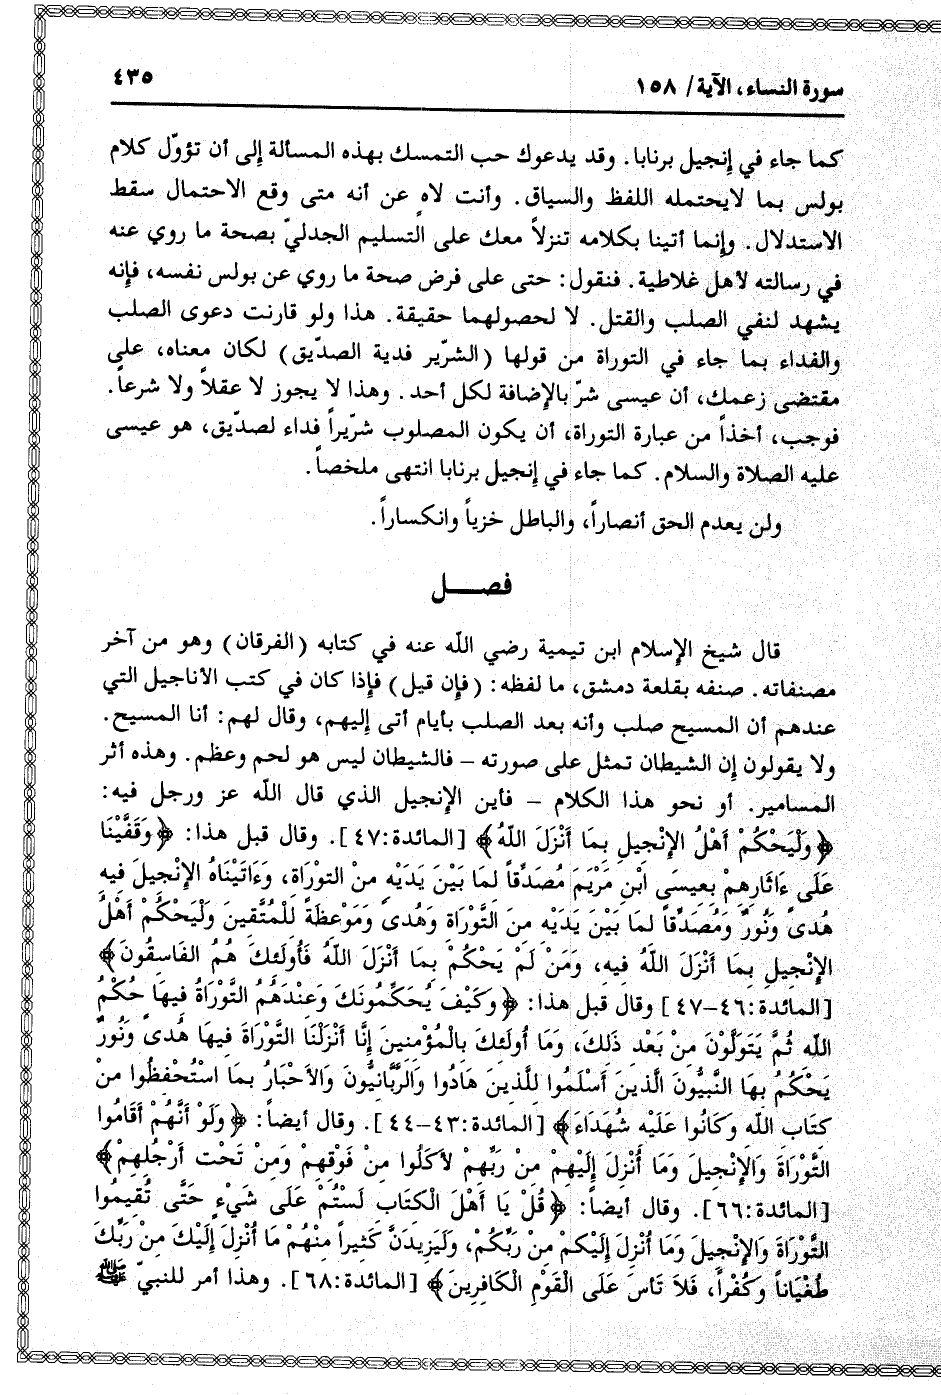 سورة النساء، الآية/ ١٥٨
٤٣٥
كما جاء في إنجيل برنابا. وقد يدعوك حب التمسك بهذه المسألة إلى أن تؤوّل كلام
بولس بما لايحتمله اللفظ والسياق. وأنت لاهٍ عن أنه متى وقع الاحتمال سقط
الاستدلال. وإنما أتينا بكلامه تنزلاً معك على التسليم الجدليّ بصحة ما روي عنه
في رسالته لأهل غلاطية. فنقول: حتى على فرض صحة ما روي عن بولس نفسه، فإنه
يشهد لنفي الصلب والقتل. لا لحصولهما حقيقة. هذا ولو قارنت دعوى الصلب
والفداء بما جاء في التوراة من قولها (الشرّير فدية الصدّيق) لكان معناه، على
مقتضى زعمك، أن عيسى شرّ بالإضافة لكل أحد. وهذا لا يجوز لا عقلاً ولا شرعاً.
فوجب، أخذاً من عبارة التوراة، أن يكون المصلوب شرّيراً فداء لصدّيق، هو عيسى
عليه الصلاة والسلام. كما جاء في إنجيل برنابا انتهى ملخصاً.
ولن يعدم الحق أنصاراً، والباطل خزياً وانكساراً.
فصـــل
قال شيخ الإسلام ابن تيمية رضي اللّه عنه في كتابه (الفرقان) وهو من آخر
مصنفاته. صنفه بقلعة دمشق، ما لفظه: (فإن قيل) فإذا كان في كتب الأناجيل التي
عندهم أن المسيح صلب وأنه بعد الصلب بأيام أتى إليهم، وقال لهم: أنا المسيح.
ولا يقولون إن الشيطان تمثل على صورته – فالشيطان ليس هو لحم وعظم. وهذه أثر
المسامير. أو نحو هذا الكلام – فأين الإنجيل الذي قال اللّه عز ورجل فيه:
﴿وَلْيَحْكُمْ أَهْلُ الإِنْجِيلِ بِمَا أَنْزَلَ اللّهُ﴾ [المائدة:٤٧]. وقال قبل هذا: ﴿وَقَفَّيْنَا
عَلَى ءَاثَارِهِمْ بِعِيسَى ابْنِ مَرْيَمَ مُصَدِّقاً لِمَا بَيْنَ يَدَيْهِ مِنَ التَّوْرَاةِ، وَءَاتَيْنَاهُ الإِنْجِيلَ فِيهِ
هُدىً وَنُورٌ وَمُصَدِّقاً لِمَا بَيْنَ يَدَيْهِ مِنَ التَّوْرَاةِ وَهُدىً وَمَوْعِظَةً لِلْمُتَّقِينَ وَلْيَحْكُمْ أَهْلُ
الإِنْجِيلِ بِمَا أَنْزَلَ اللَّهُ فِيهِ، وَمَنْ لَمْ يَحْكُمْ بِمَا أَنْزَلَ اللّهُ فَأُولَئِكَ هُمُ الفَاسِقُونَ﴾
[المائدة:٤٦–٤٧] وقال قبل هذا: ﴿وَكَيْفَ يُحَكِّمُونَكَ وَعِنْدَهُمُ التَّوْرَاةُ فِيهَا حُكْمُ
اللّهِ ثُمَّ يَتَوَلَّوْنَ مِنْ بَعْدِ ذَلِكَ، وَمَا أُولَئِكَ بِالْمُؤْمِنِينَ إِنَّا أَنْزَلْنَا التَّوْرَاةَ فِيهَا هُدىً وَنُورٌ
يَحْكُمُ بِهَا النَّبِيُّونَ الَّذِينَ أَسْلَمُوا لِلَّذِينَ هَادُوا وَالرَّبَّانِيُّونَ وَالأَحْبَارُ بِمَا اسْتُحْفِظُوا مِنْ
كِتَابِ اللّهِ وَكَانُوا عَلَيْهِ شُهَدَاءَ﴾ [المائدة:٤٣–٤٤]. وقال أيضاً: ﴿وَلَوْ أَنَّهُمْ أَقَامُوا
التَّوْرَاةَ وَالإِنْجِيلَ وَمَا أُنْزِلَ إِلَيْهِمْ مِنْ رَبِّهِمْ لأَكَلُوا مِنْ فَوْقِهِمْ وَمِنْ تَحْتِ أَرْجُلِهِمْ﴾
[المائدة:٦٦]. وقال أيضاً: ﴿قُلْ يَا أَهْلَ الْكِتَابِ لَسْتُمْ عَلَى شَيْءٍ حَتَّى تُقِيمُوا
التَّوْرَاةَ وَالإِنْجِيلَ وَمَا أُنْزِلَ إِلَيْكُمْ مِنْ رَبِّكُمْ، وَلَيَزِيدَنَّ كَثِيراً مِنْهُمْ مَا أُنْزِلَ إِلَيْكَ مِنْ رَبِّكَ
طُغْيَاناً وَكُفْراً، فَلاَ تَأْسَ عَلَى الْقَوْمِ الْكَافِرِينَ﴾ [المائدة:٦٨]. وهذا أمر للنبيّ ﷺ